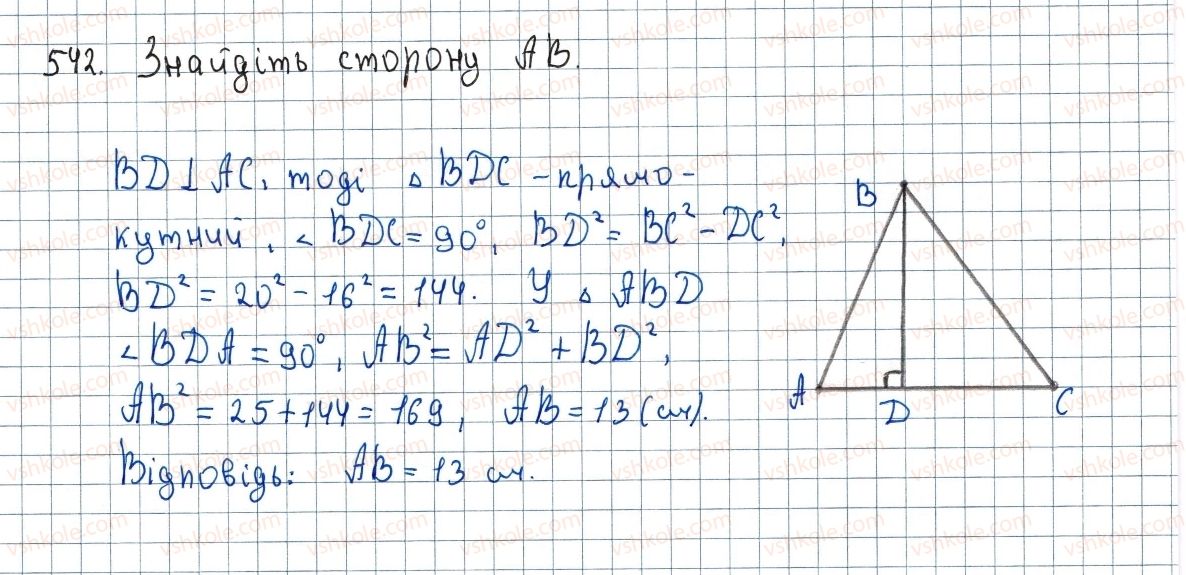 542. Знайдіть сторону AB.
BD ⊥ AC, тоді △ BDC - прямо-
кутний, ∠ BDC = 90°, BD² = BC² - DC²,
BD² = 20² - 16² = 144. У △ ABD
∠ BDA = 90°, AB² = AD² + BD²,
AB² = 25 + 144 = 169, AB = 13 (см).
Відповідь: AB = 13 см.
B
A
D
C